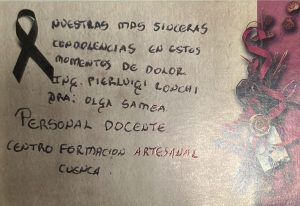 NUESTRAS MAS SINCERAS
CONDOLENCIAS EN ESTOS
MOMENTOS DE DOLOR
ING. PIERLUIGI RONCHI
DRA: OLGA SAMEA
PERSONAL DOCENTE
CENTRO FORMACION ARTESANAL
CUENCA.